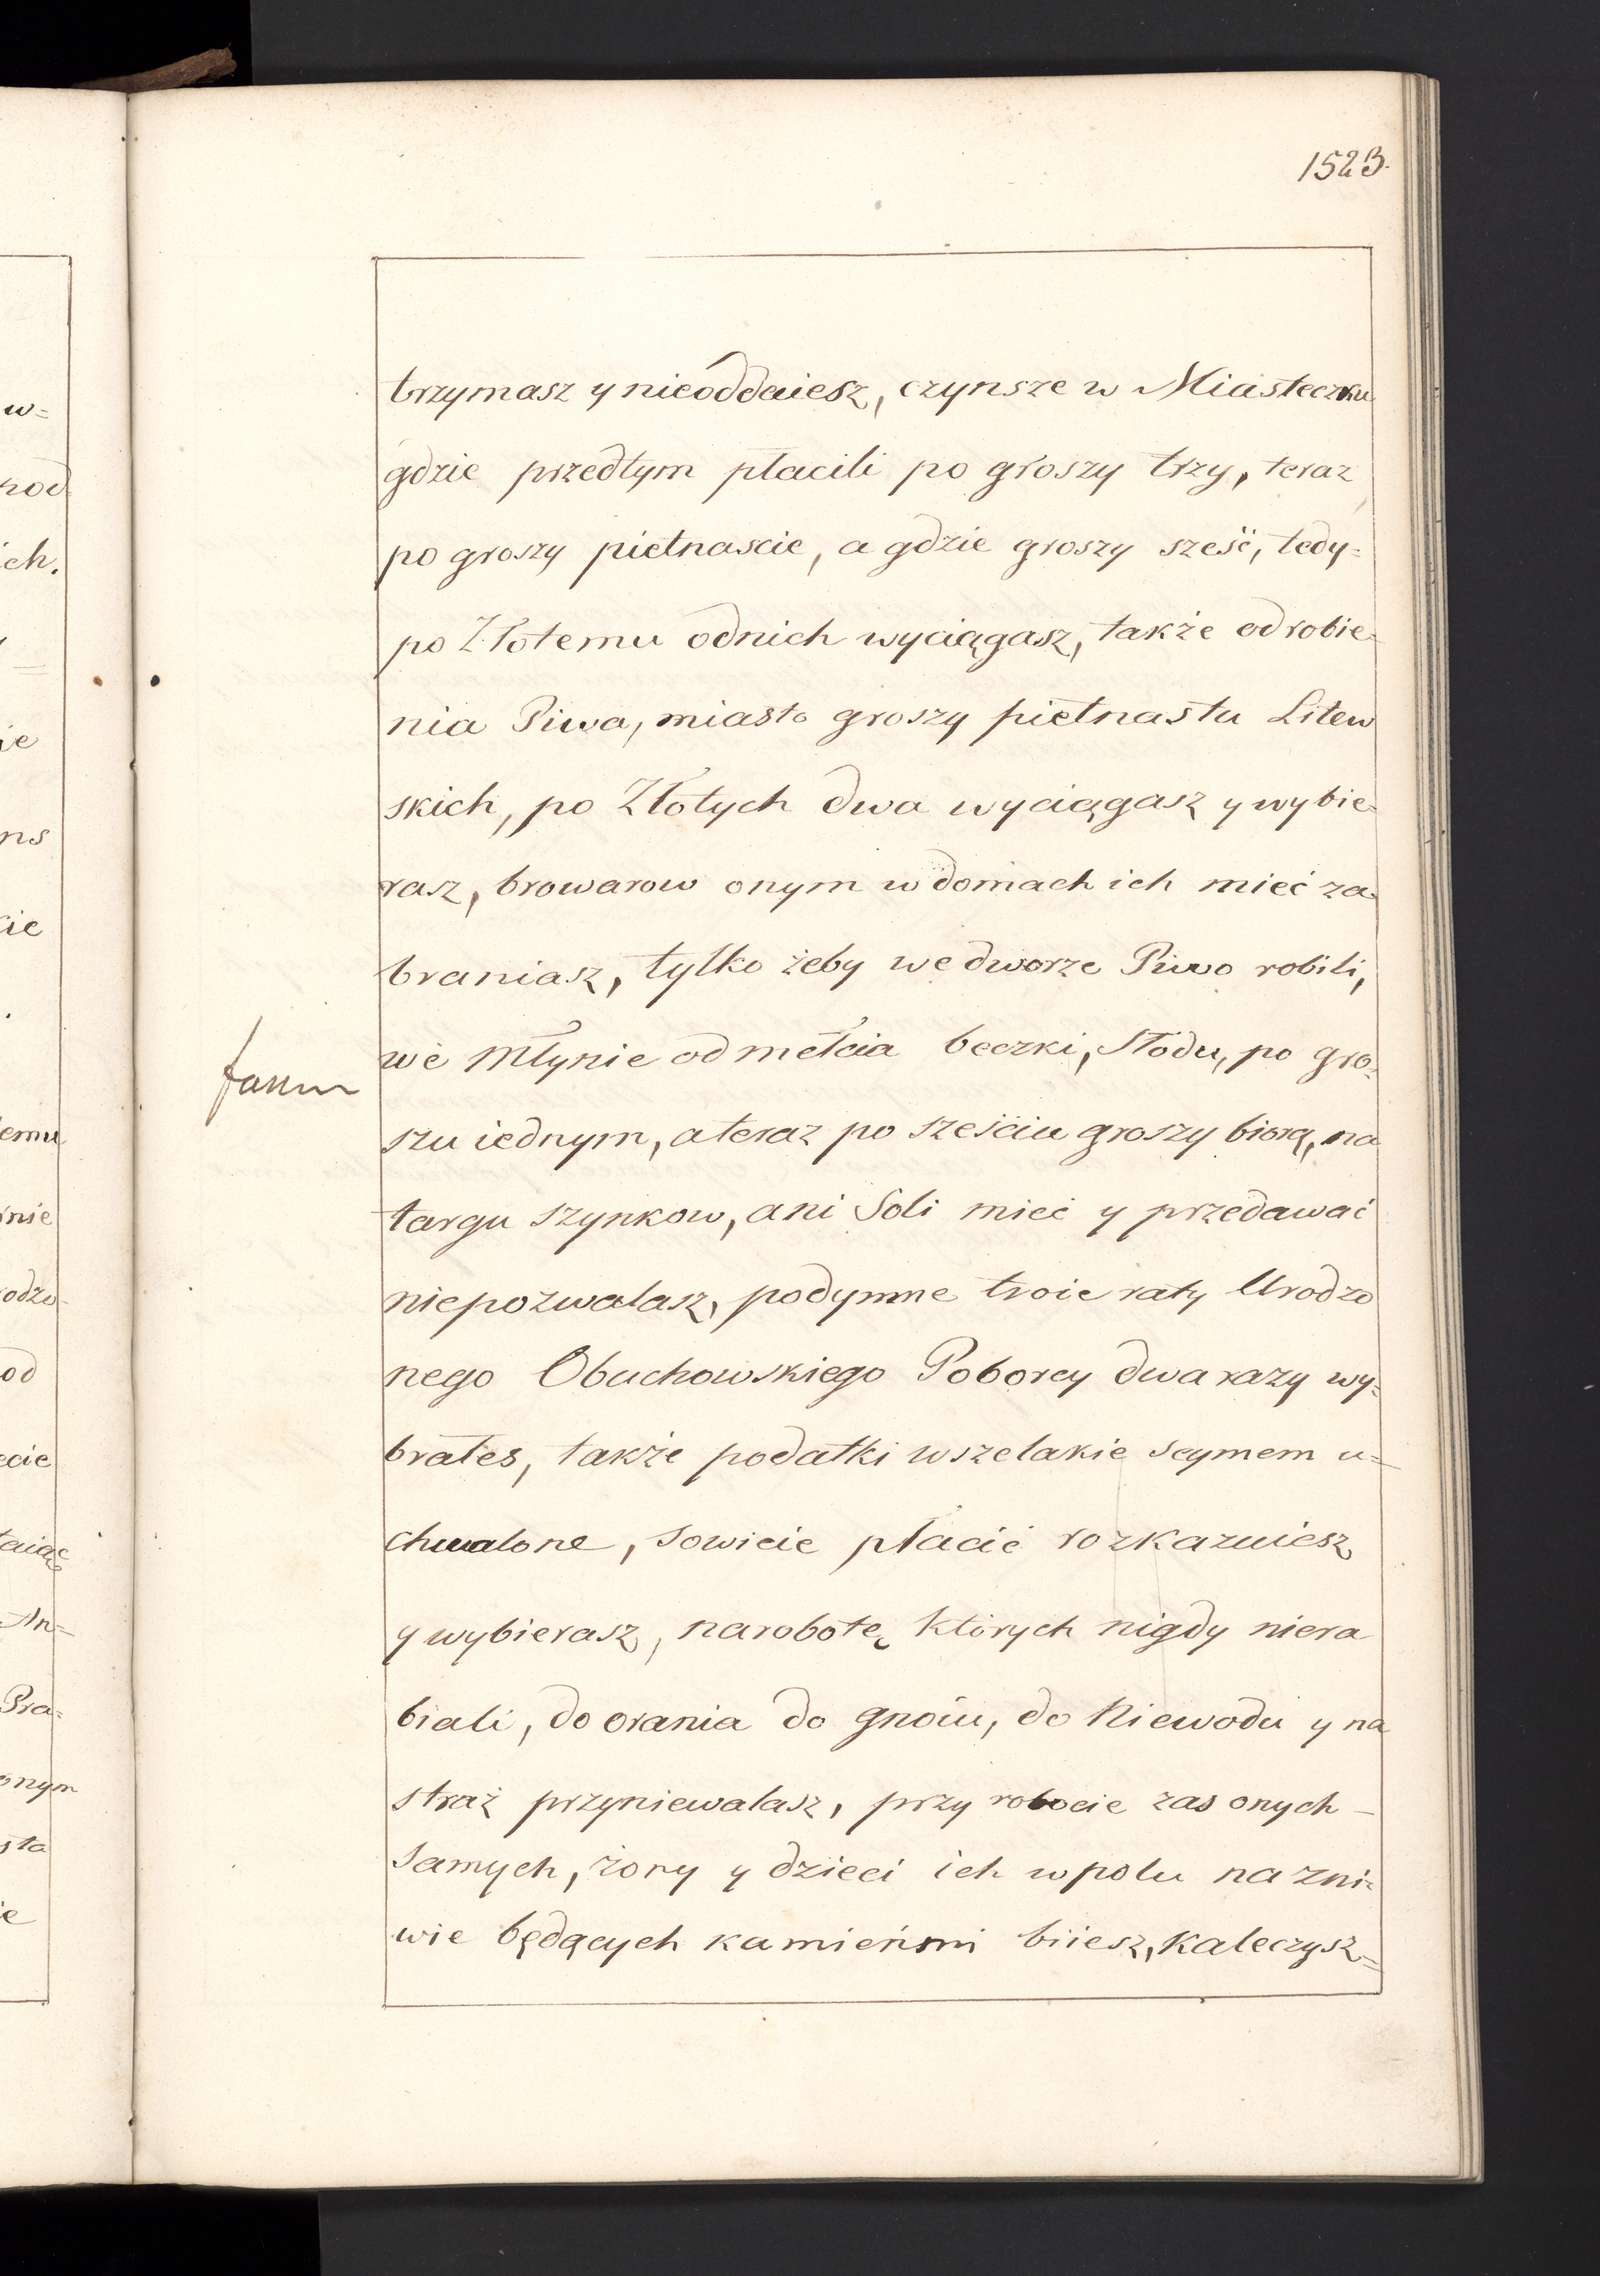 1523.
trzymasz y nieoddaiesz, czynsze w Miasteczku
gdzie przedtym płacili po groszy trzy, teraz
po groszy pietnascie, a gdzie groszy sześć, tedy=
po Złotemu odnich wyciągasz, także odrobie-
nia Piwa, miasto groszy pietnastu Litew
skich, po Złotych dwa wyciągasz y wybie-
rasz, browarow onym w domach ich mieć za-
braniasz, tylko żeby we dworze Piwo robili,
we Młynie od mełcia beczki, Słodu, po gro-
szu iednym, a teraz po sześciu groszy biorą, na
targu szynkow, ani Soli mieć y przedawać
niepozwalasz, podymne troie raty Urodzo
nego Obuchowskiego Poborcy dwa razy wy=
brałes, także podatki wszelakie seymem u=
chwalone, sowicie płacić rozkazuiesz
y wybierasz, narobotę, których nigdy niera
biali, do orania do gnoiu, do Niewodu y na
straż przyniewalasz, przy robocie zas onych -
samych, żony y dzieci ich w polu na zni-
wie będących kamieńmi biiesz, kaleczysz=
w=
pod
ich.
ie
ns
kie
emu
nie
odzo-
od
ecie
An=
Pra=
onym
sta
ie